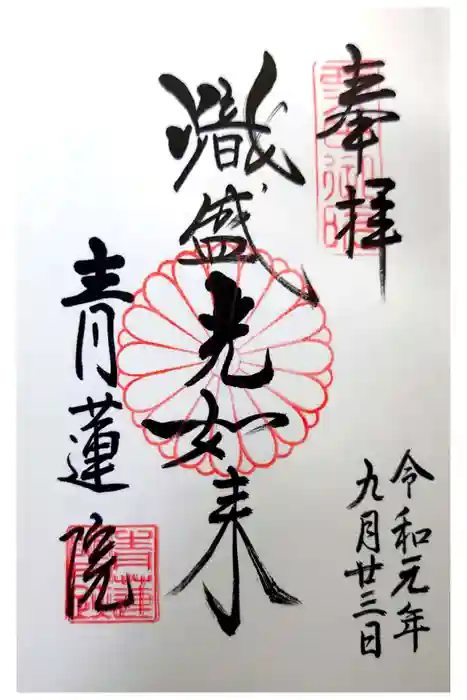 奉拝
令和元年
九月廿三日
熾盛光如来
青蓮院